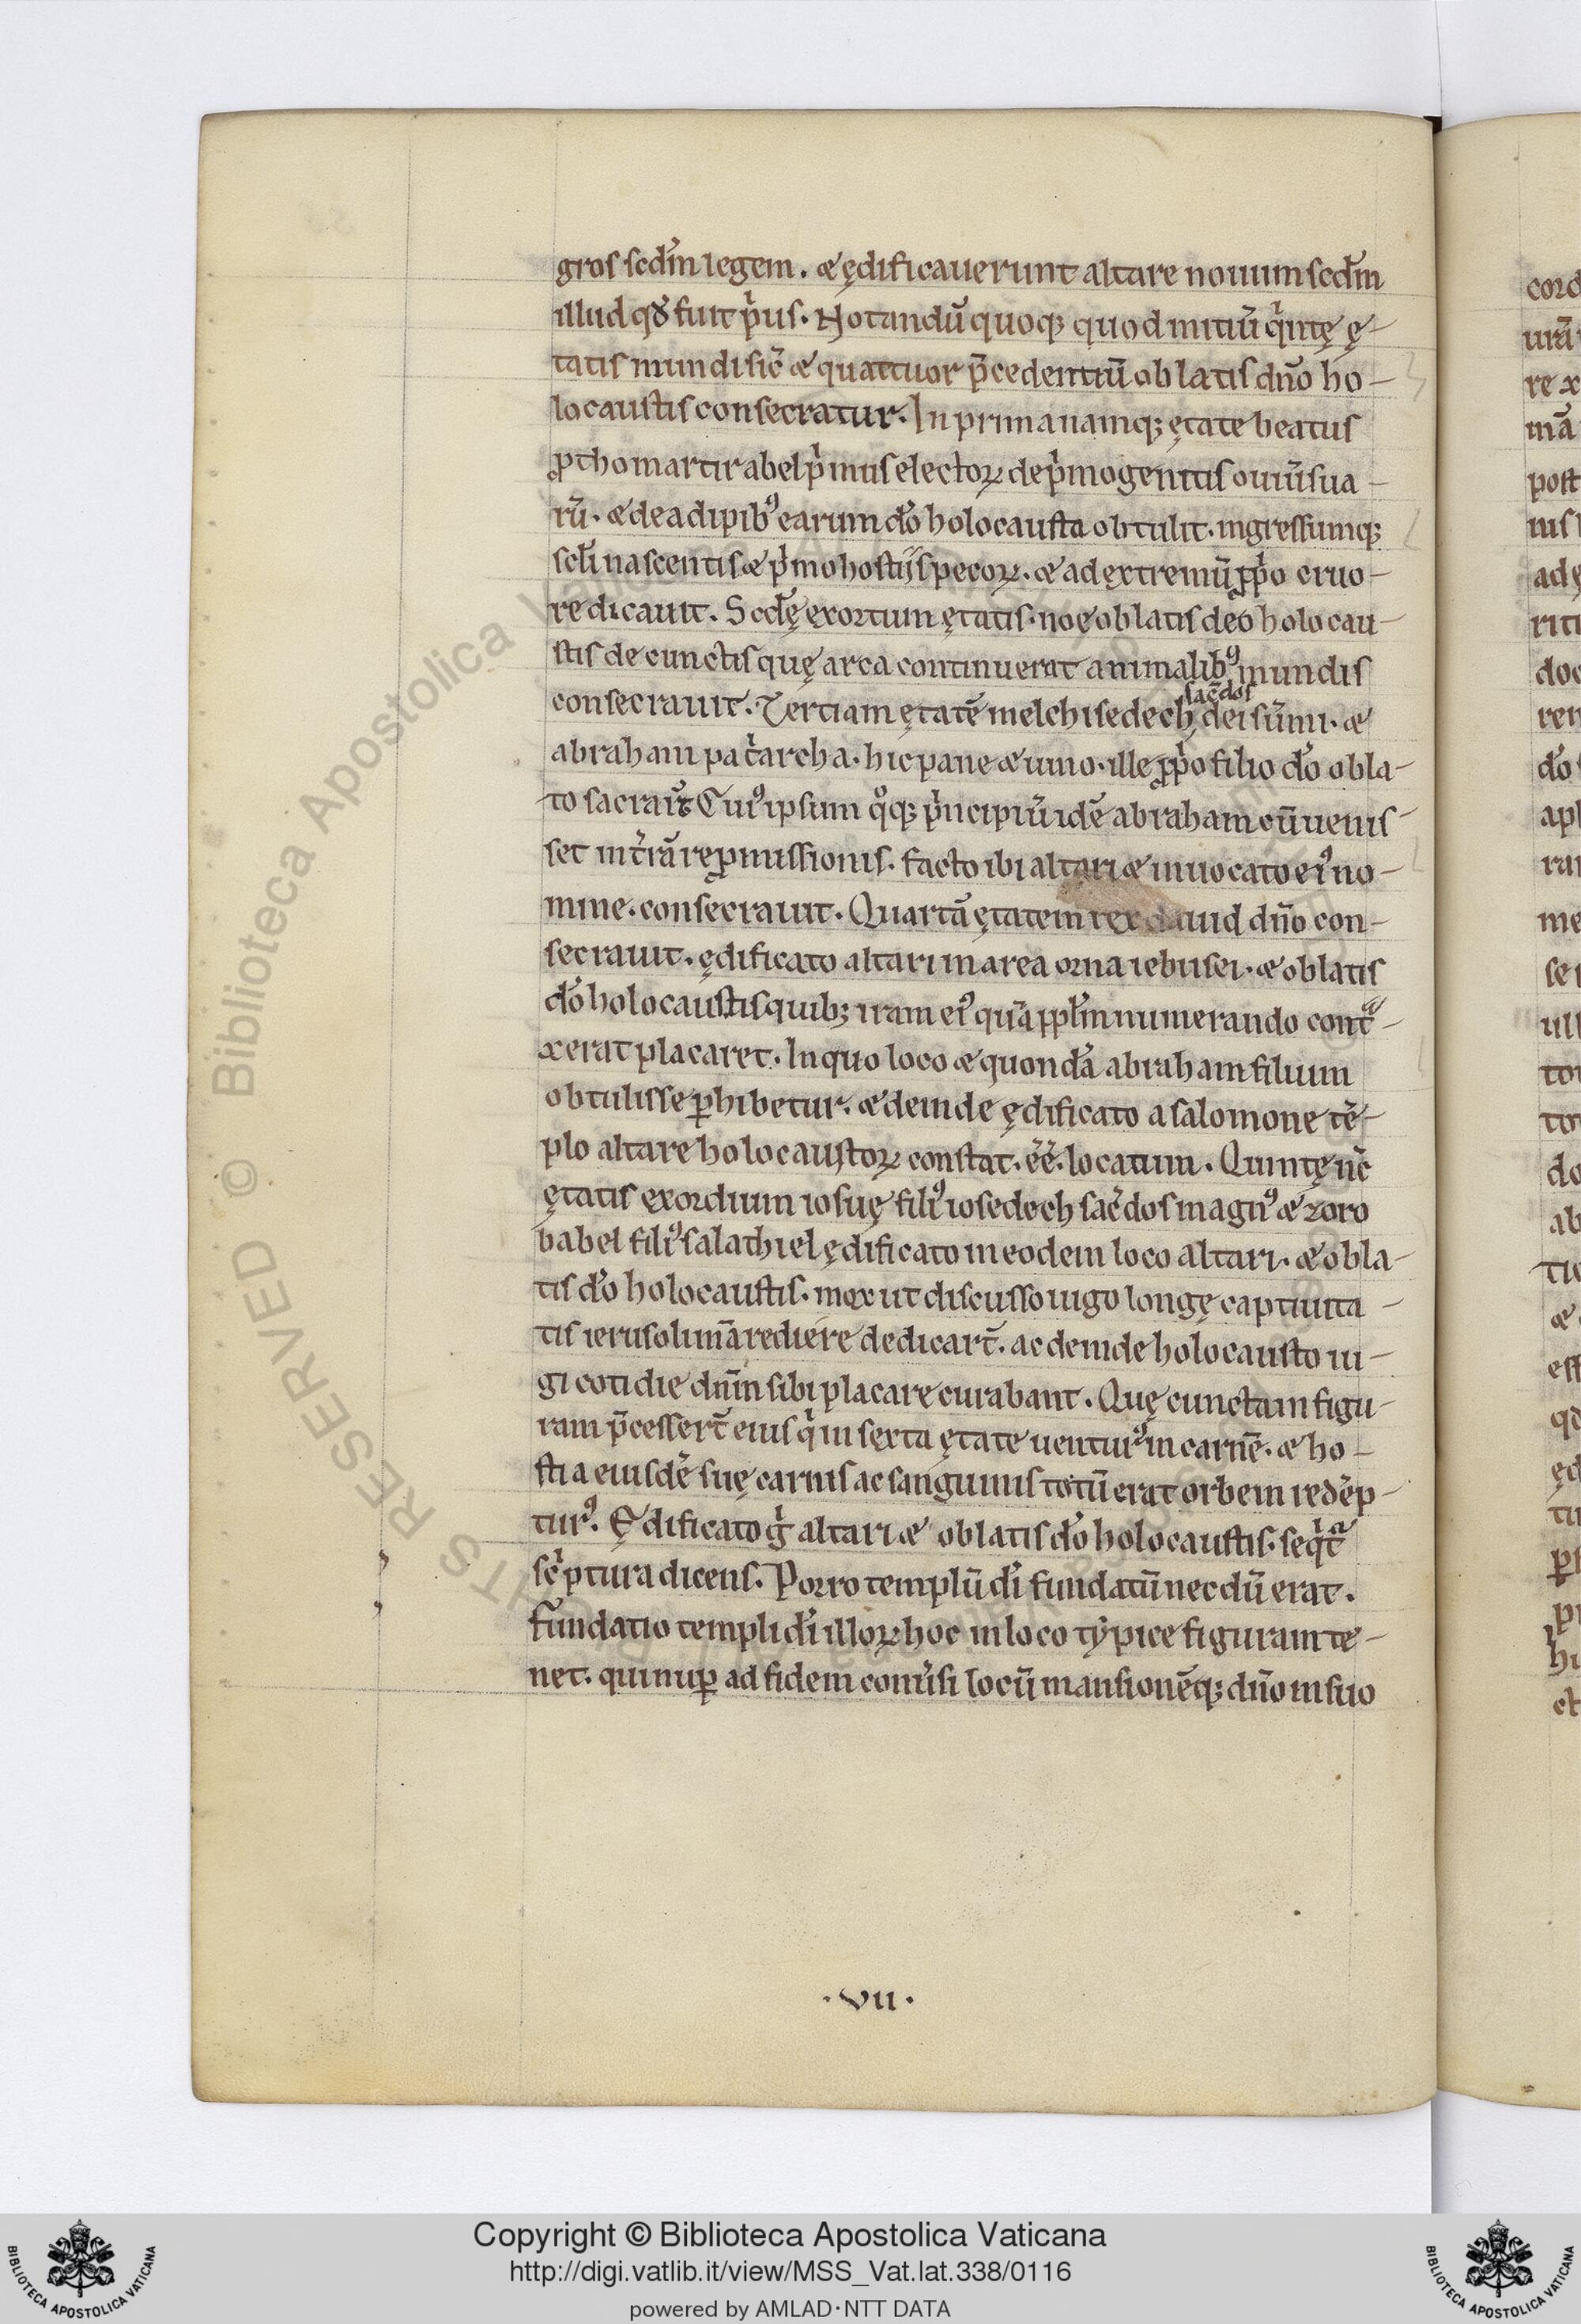 gros scd'm legem. & ędificauerunt altare nouum scd'm
illud qđ fuit p'us. Notandū quoq; quod initiū q'ntę ę-
tatis mundi sic̄ & quattuor p̄cedentiū oblatis dn̄o ho-
locaustis consecratur. In prima namq; ętate beatus
ꝓthomartir abel p'mus electoꝝ de p'mogenitis ouiū sua-
rū. & de adipibꝰ earum do' holocausta obtulit. ingressumq;
sc̄li nascentis & p'mo hostijs pecoꝝ. & ad extremū ꝓp'o cruo-
re dicauit. Scd'ę exortum ętatis. noe oblatis deo holocau-
stis de cunctis quę arca continuerat animalibꝰ mundis
sac̄dos
consecrauit. Tertiam ętatē melchisedech dei sūmi. &
abraham pat'archa. hic pane & uino. ille ꝓp'o filio do' obla-
to sacrar̄t Cuiꝰ ipsum qoq; p'ncipiū idē abraham cū uenis-
set in t'rā repmissionis. facto ibi altari & inuocato eiꝰ no-
mine. consecrauit. Quartā ętatem rex dauid dn̄o con-
secrauit. ędificato altari in area orna iebusei. & oblatis
do' holocaustis quib; iram eiꝰ quā ppl'm numerando cont͛a-
xerat placaret. In quo loco & quondā abraham filium
obtulisse ꝑhibetur. & deinde ędificato a salomone tē-
plo altare holocaustoꝝ constat. ēē. locatum. Quintę nc̄
ętatis exordium iosuę filiꝰ iosedech sac̄dos magnꝰ & zoro
babel filiꝰ salathiel ędificato in eodem loco altari. & obla-
tis do' holocaustis. mox ut discusso iugo longę captiuita-
tis ierusolimā rediere dedicart̄. ac deinde holocausto iu-
gi cotidie dn̄m sibi placare curabant. Quę cuncta in figu-
ram p̄cessert̄ eius q'in sexta ętate uenturꝰ in carnē. & ho-
stia eiusdē suę carnis ac sanguinis totū erat orbem redēp-
turꝰ. Ędificato g' altari & oblatis do' holocaustis. seq't͛
sc'ptura dicens. Porro templū di' fundatū necdū erat.
fūndatio templi di' illoꝝ hoc in loco typice figuram te-
net. qui nuꝑ ad fidem conu'si locū mansionēq; dn̄o in suo
.VII.
Copyright © Biblioteca Apostolica Vaticana
http://digi.vatlib.it/view/MSS_Vat.lat.338/0116
powered by AMLAD·NTT DATA